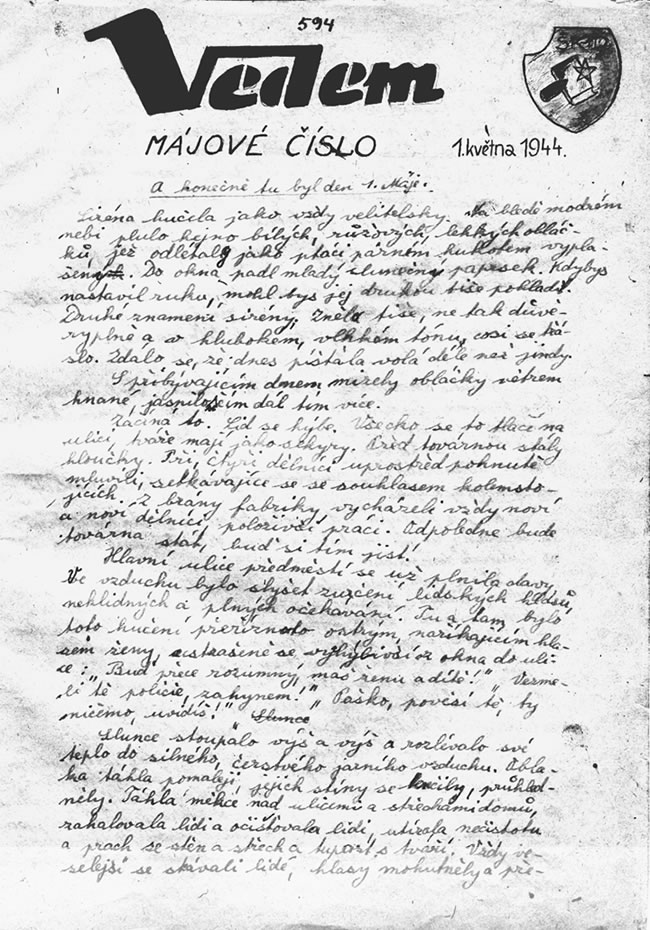 594
Vedem
MÁJOVÉ ČÍSLO 1. května 1944.
A konečně tu byl den 1. Máje.
Siréna hučela jako vždy velitelsky. Na bledě modrém
nebi plulo hejno bílých, růžových, lehkých obláč-
ků, jež odlétaly jako ptáci parném hukotem vypla-
šeny. Do okna padl mladý sluneční paprsek. Kdybys
nastavil ruku, mohl bys jej druhou tiše pohladit.
Druhé znamení sirény, zněla tiše, ne tak důvě-
ryplně a v hlubokém, vlhkém tónu, cosi se
slo. Zdálo se, že dnes píšťala volá déle než jindy.
S přibývajícím dnem mizely obláčky větrem
hnané, jasnilo dál tím více.
Začíná to. Lid se hýbe. Všecko se to tlačí na
ulici, tváře mají jako sekyry. Před továrnou stály
hloučky. Tři, čtyři dělníci uprostřed pohnutě
mluvili, setkávajíce se se souhlasem kolemsto-
jících. Z brány fabriky vycházeli vždy noví
a noví dělníci, položivší práci. Odpoledne bude
továrna stát, buď si tím jist!
Hlavní ulice předměstí se už plnila davy.
Ve vzduchu bylo slyšet zvučení lidských hlasů,
neklidných a plných očekávání. Tu a tam bylo
toto hučení přeříznuto ostrým, naříkajícím hla-
sem ženy, ustrašeně se vyhýbivší z okna do uli-
ce: "Buď přece rozumný, máš ženu a dítě!" "Vezme-
li tě policie, zahynem!" "Paško, pověsí tě, ty
ničemo, uvidíš!" Slunce
Slunce stoupalo výš a výš a rozlévalo své
teplo do silného, čerstvého jarního vzduchu. Obla-
ka táhla pomaleji, jejich stíny se průhled-
něly. Táhla měkce nad ulicemi a střechami domů,
zahalovala lidi a očišťovala lidi, utírala nečistotu
a prach se stěn a střech a s tváří. Vždy ve-
selejší se stávali lidé, hlasy mohutněly a pře-